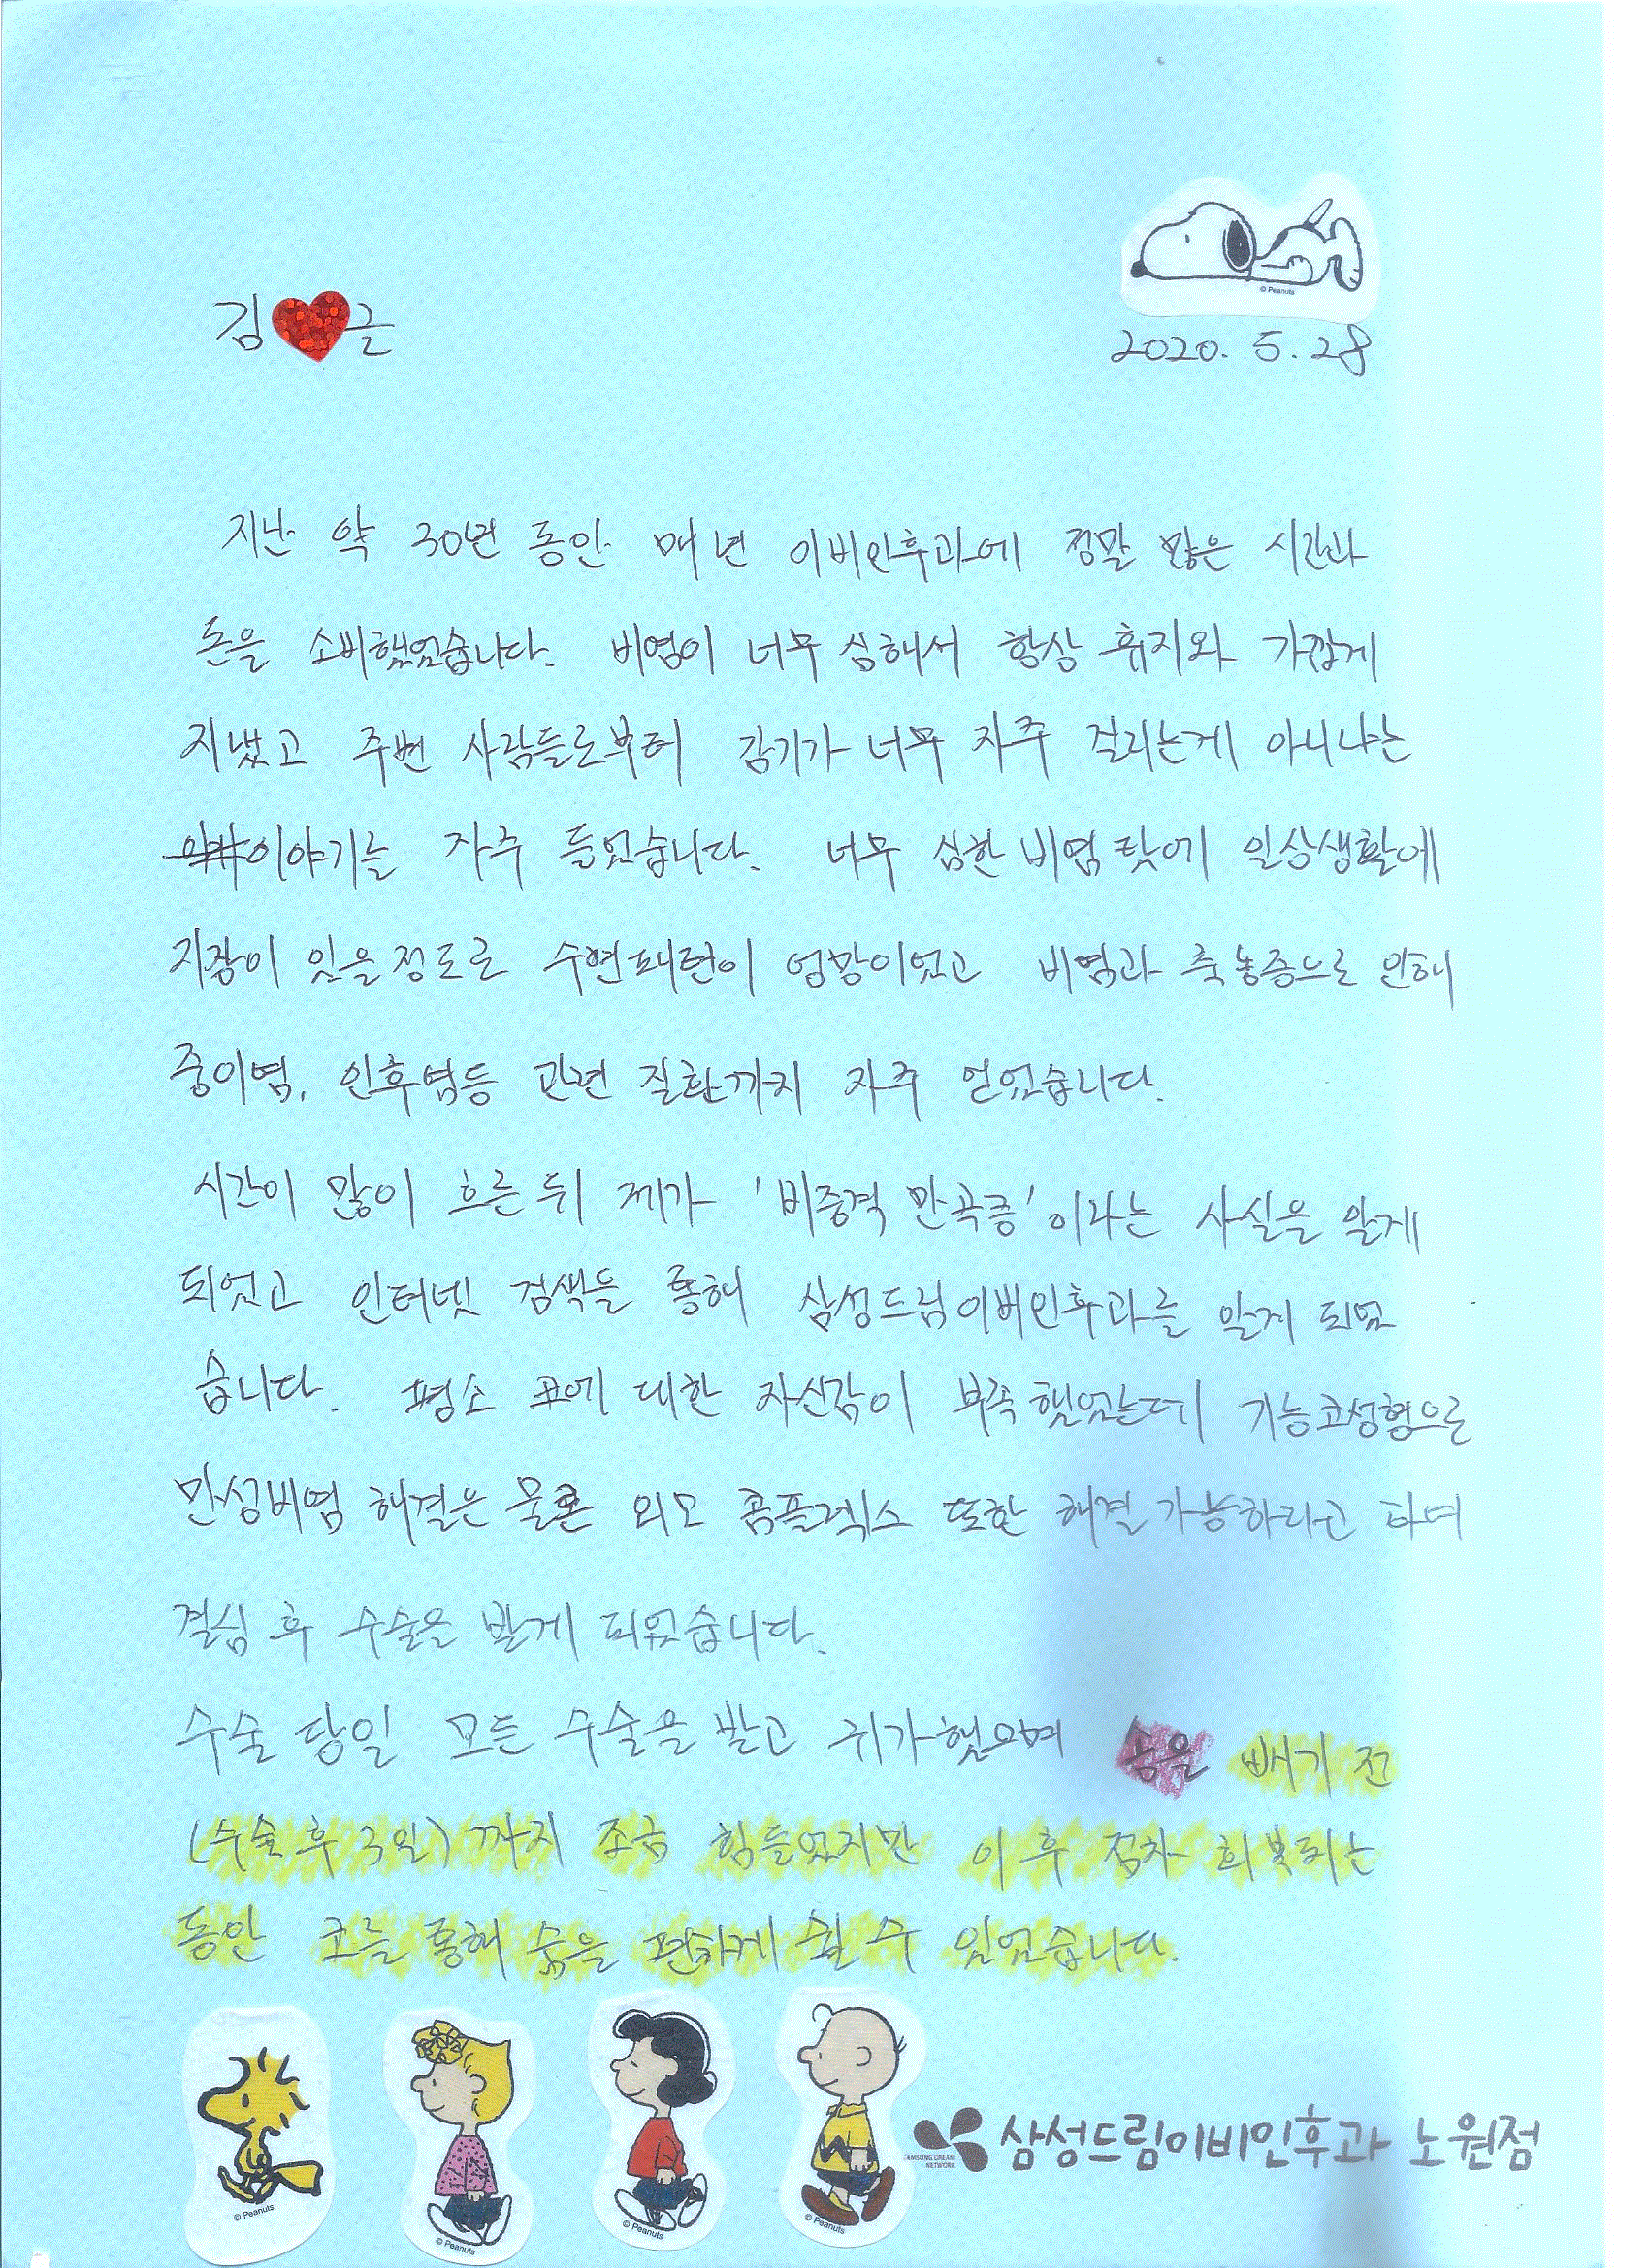 김 글
© Peanuts
2020. 5. 28
지난 약 30년 동안 매년 이비인후과에 정말 많은 시간과
돈을 소비했었습니다. 비염이 너무 심해서 항상 휴지와 가깝게
지냈고 주변 사람들로부터 감기가 너무 자주 걸리는게 아니냐는
이야기를 자주 들었습니다. 너무 심한 비염 탓에 일상생활에
지장이 있을 정도로 수면패턴이 엉망이었고 비염과 축농증으로 인해
중이염, 인후염등 관련 질환까지 자주 얻었습니다.
시간이 많이 흐른 뒤 제가 '비중격 만곡증' 이라는 사실을 알게
되었고 인터넷 검색을 통해 삼성드림이비인후과를 알게 되었
습니다. 평소 코에 대한 자신감이 부족했었는데 기능코성형으로
만성비염 해결은 물론 외모 콤플렉스 또한 해결 가능하리라고 하여
결심 후 수술을 받게 되었습니다.
수술 당일 모든 수술을 받고 귀가했으며 솜을 빼기 전
(수술 후 3일) 까지 조금 힘들었지만 이후 점차 회복되는
동안 코를 통해 숨을 편하게 쉴 수 있었습니다.
© Peanuts
© Peanuts
© Peanuts
© Peanuts
SAMSUNG DREAM
NETWORK
삼성드림이비인후과 노원점